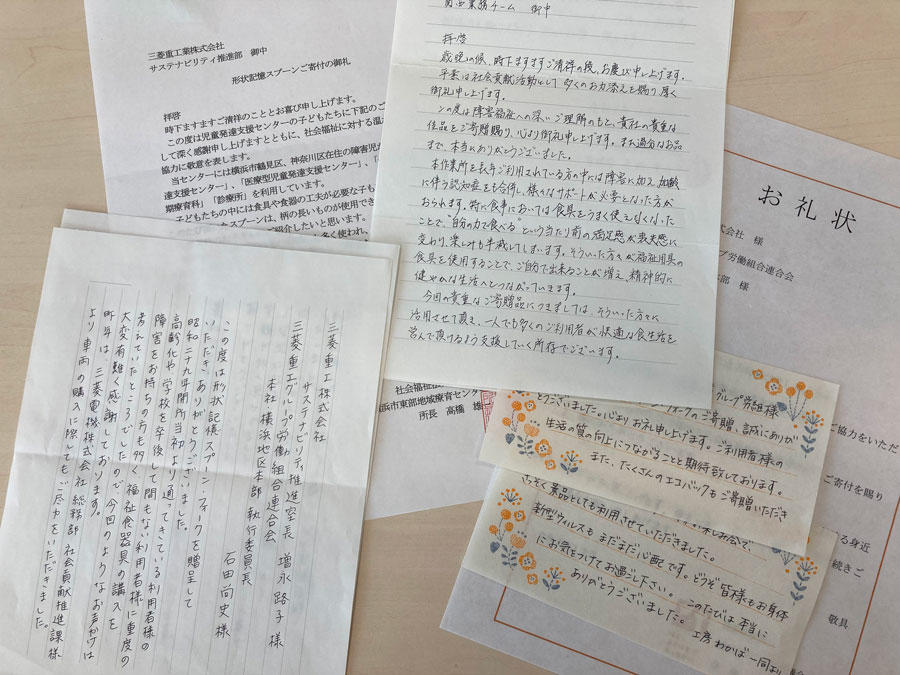 三菱重工業株式会社
サステナビリティ推進部 御中
形状記憶スプーンご寄付の御礼
拝啓
時下ますますご清祥のこととお喜び申し上げます。
この度は児童発達支援センターの子どもたちに下記のご
して深く感謝申し上げますとともに、社会福祉に対する温か
協力に敬意を表します。
当センターには横浜市鶴見区、神奈川区在住の障害児が
達支援センター」、「医療型児童発達支援センター」、「
期療育科」「診療所」を利用しています。
子どもたちの中には食具や食器の工夫が必要な子も
たスプーンは、柄の長いものが使用でき
ご紹介したいと思います。
多く使われ、
社会福祉法
浜市東部地域療育センター
所長 高橋 雄
業務チーム 御中
拝啓
歳晩の候、時下ますますご清祥の段、お慶び申し上げます。
平素は社会貢献活動として多くのお力添えを賜り厚く
御礼申し上げます。
この度は障害福祉への深いご理解のもと、貴社の貴重な
佳品をご寄贈賜り、心より御礼申し上げます。また過分なお品
まで、本当にありがとうございました。
本作業所を長年ご利用されている方の中には障害に加え、加齢
に伴う認知症をも合併し、様々なサポートが必要となった方が
おられます。特に食事においては食具をうまく使えなくなった
ことで、自分の力で食べるという当たり前の満足感が喪失感に
変わり、楽しみも半減してしまいます。そういった方々が福祉用具の
食具を使用することで、ご自分で出来ることが増え、精神的に
健やかな生活へとつながっていきます。
今回の貴重なご寄贈品につきましては、そういった方々に
活用させて頂き、一人でも多くのご利用者が快適な食生活を
営んで頂けるよう支援していく所存でございます。
三菱重工株式会社
サステナビリティ推進室長 増永 路子 様
三菱重工グループ労働組合連合会
本社 横浜地区本部 執行委員長
石田 尚史 様
この度は形状記憶スプーン・フォークを贈呈して
いただきありがとうございました。
昭和二十九年開所当初より通ってきている利用者様の
高齢化や学校を卒後して間もない利用者様に重度の
障害をお持ちの方も多く福祉食器具の購入を
考えていたところでしたので今回のようなお声がけは
大変有難く感謝しております。
昨年は、三菱電機株式会社総務部 社会貢献推進課様
より車両の購入に際してもご尽力をいただきました。
お礼状
式会社 様
プ労働組合連合会
本部 様
ご協力をいただ
ご寄付を賜り
る身近
続きご
敬具
グループ労組様
ォークのご寄贈、誠にありが
とうございました。心よりお礼申し上げます。ご利用者様の
生活の質の向上につながることと期待致しております。
また、たくさんのエコバックもご寄贈いただき
楽しみ会で、
っそく景品としても利用させていただきました。
新型ウィルスもまだまだ心配です。どうぞ皆様もお身体
にお気をつけてお過ごし下さい。このたびは本当に
ありがとうございました。
工房わかば 一同より